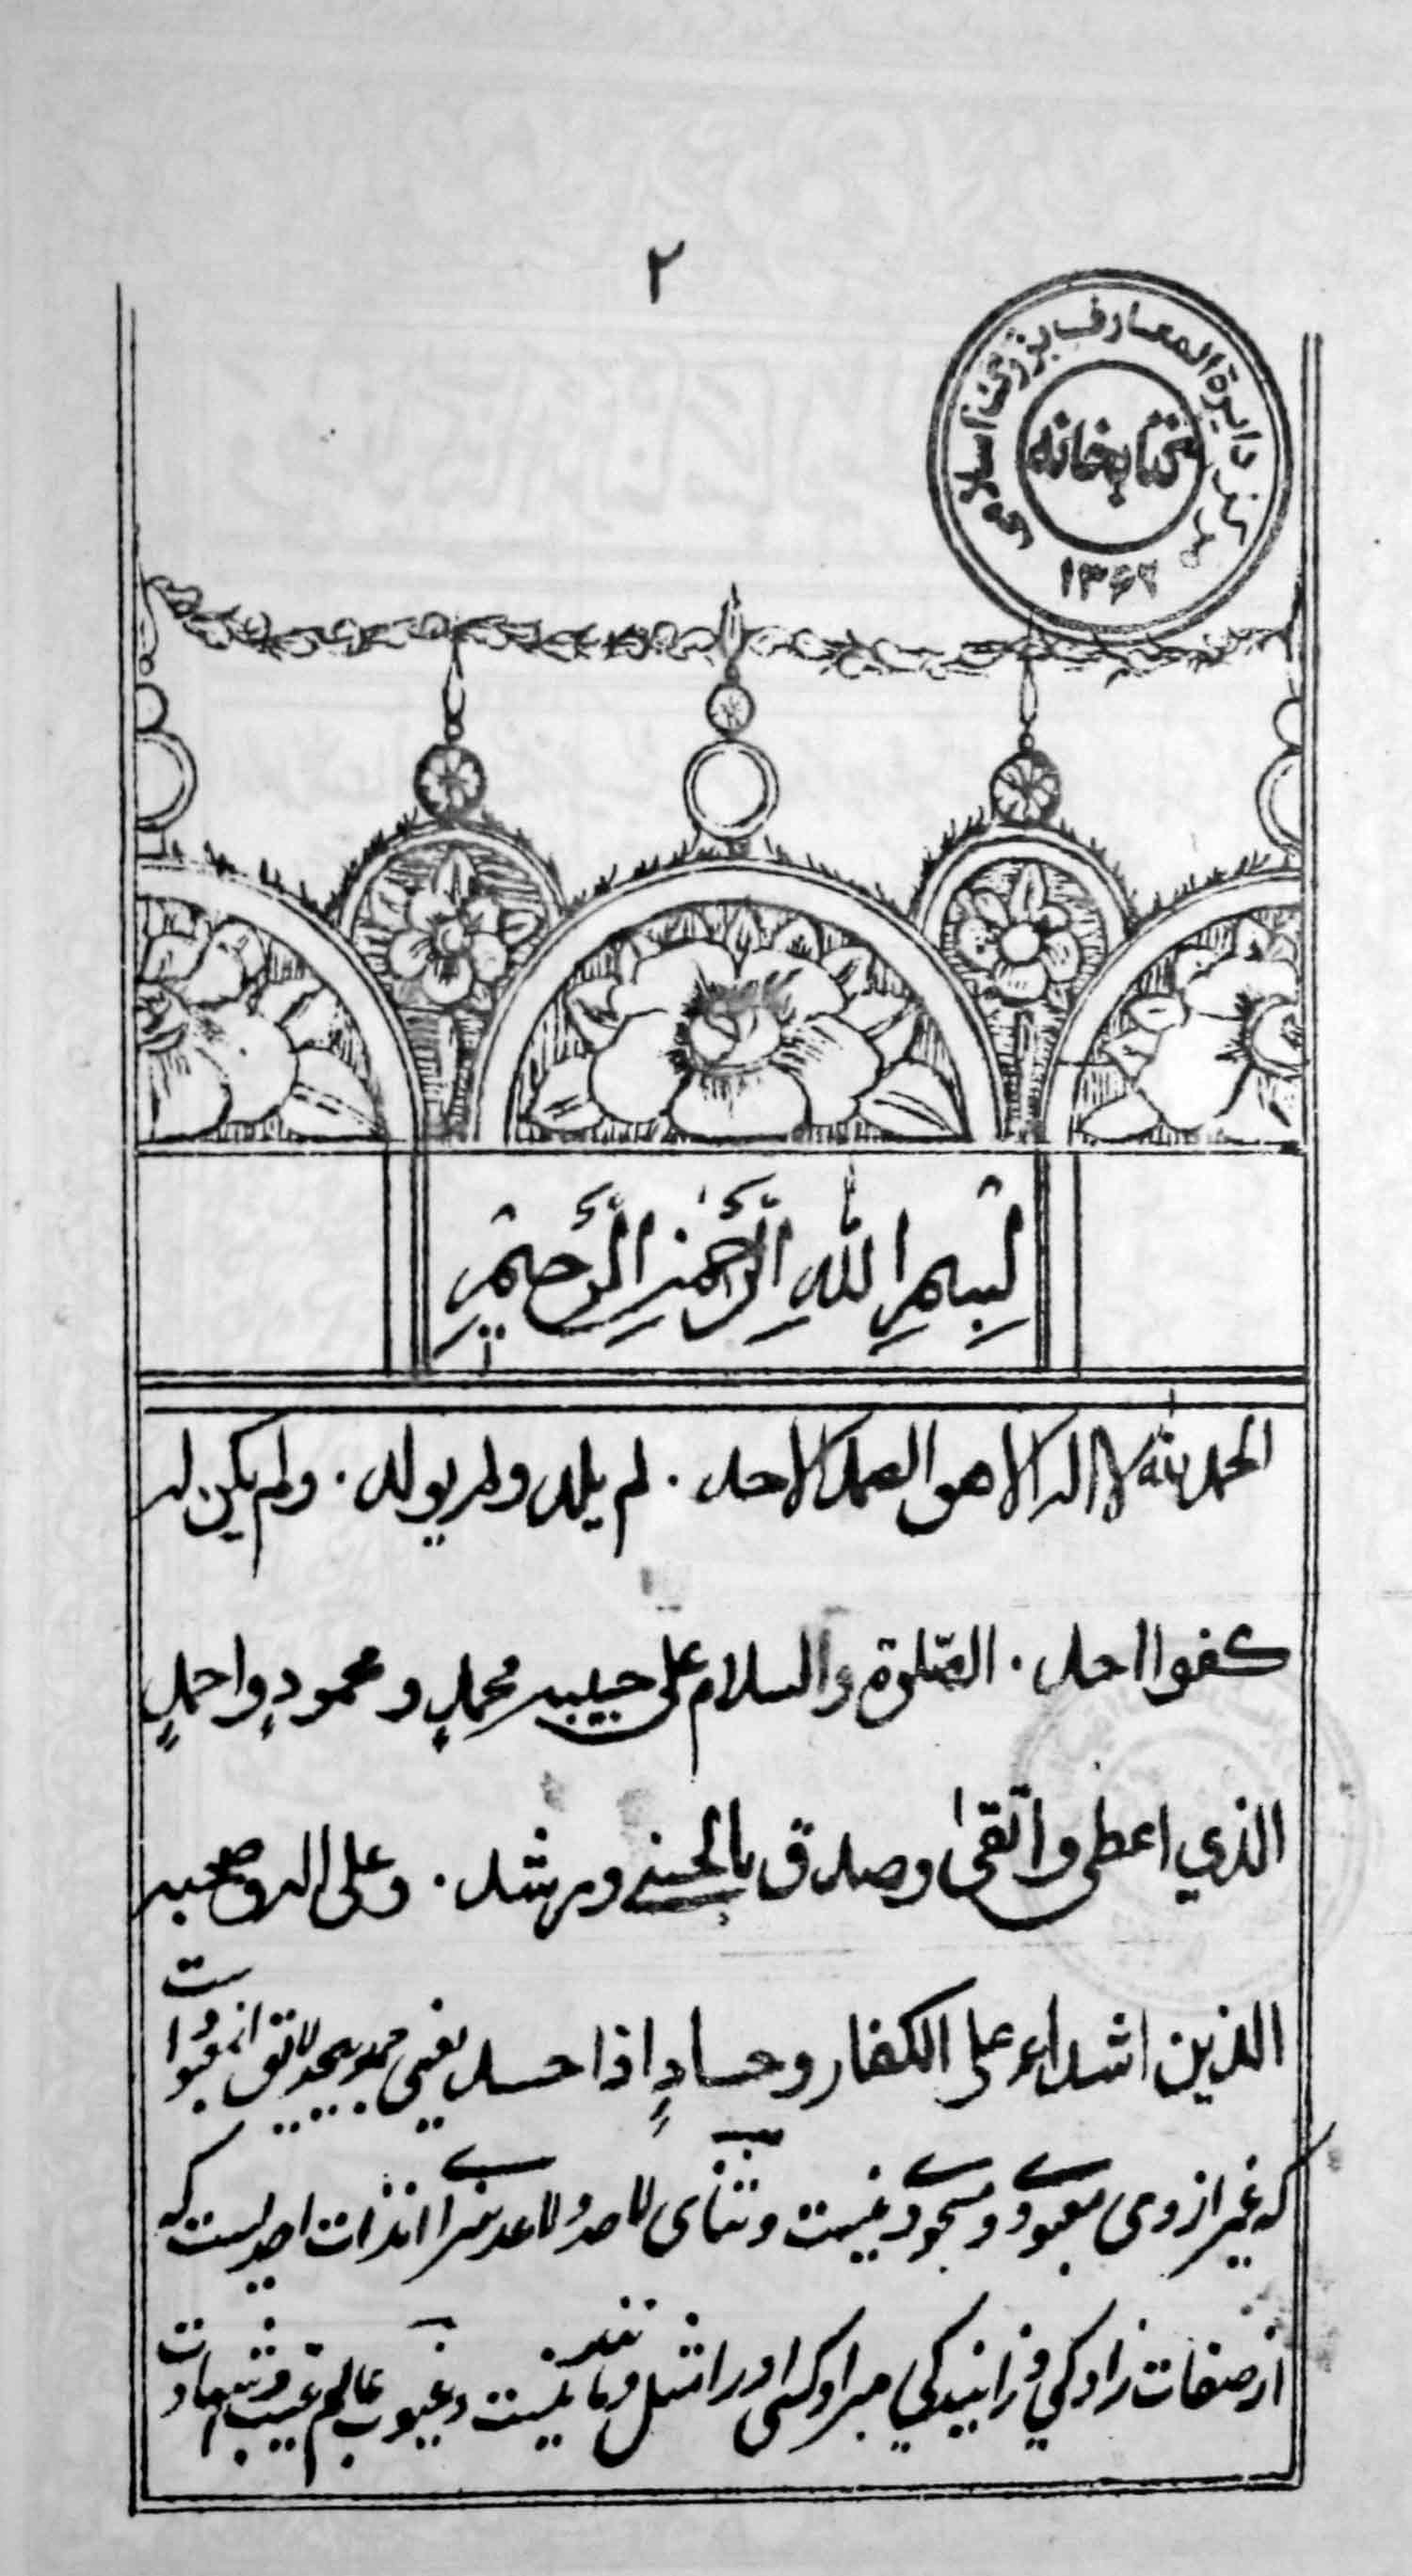 ٢
مرکز دایرة المعارف بزرگ اسلامی
کتابخانه
۱۳۶۲
بسم الله الرحمن الرحیم
الحمد لله لا اله الا هو الصمد الاحد . لم یلد ولم یولد . ولم یکن له
کفوا احد . الصّلوة والسلام علی حبیبه محمدٍ و محمودٍ واحمدٍ
الذي اعطی واتقیٰ وصدق بالحسنی ورشد . وعلی اله وصحبه
الذین اشداء علی الکفار وحسادٍ اذا حسد یعنی حمد بیحد لایق ان معبود است
که غیر از وی معبودی و مسجودی نیست و ثنای لاحد ولاعد سزا انذات احدیست که
از صفات زادگي و زانیدگي مبرا و کسی اورا مثل ومانند نیست و غیوب عالم غیب و شهادت